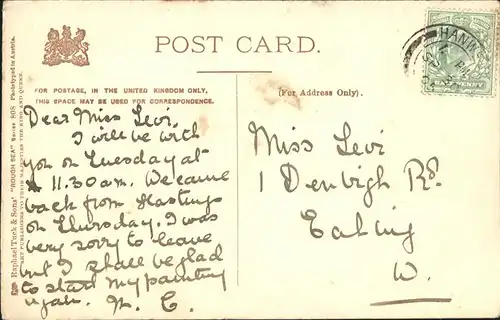 POST CARD.
FOR POSTAGE, IN THE UNITED KINGDOM ONLY,
THIS SPACE MAY BE USED FOR CORRESPONDENCE.
(For Address Only).
Dear Miss Levi,
I will be with
you on Tuesday at
11.30 am. We came
back from Hastings
on Thursday. I was
very sorry to leave
but I shall be glad
to start my painting
again. M. C.
Miss Levi
1 Denbigh Rd.
Ealing
W.
HANW
Raphael Tuck & Sons' "ROUGH SEA" Series 808. Phototyped in Austria.
ART PUBLISHERS TO THEIR MAJESTIES THE KING AND QUEEN.